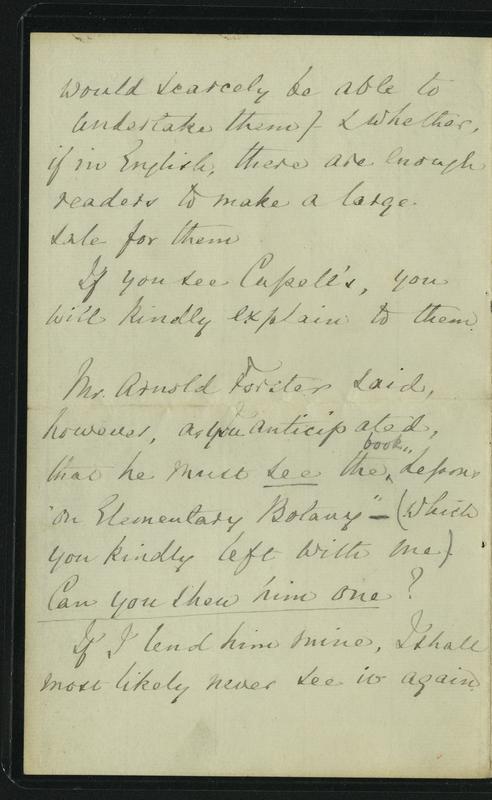 would scarcely be able to
undertake them) & whether,
if in English, there are enough
readers to make a large
sale for them
If you see Capell's, you
will kindly explain to them
Mr. Arnold Forster said,
however, as you anticipated,
that he must see the book, "Lessons
"on Elementary Botany" - (which
you kindly left with me).
Can you shew him one?
If I lend him mine, I shall
most likely never see it again